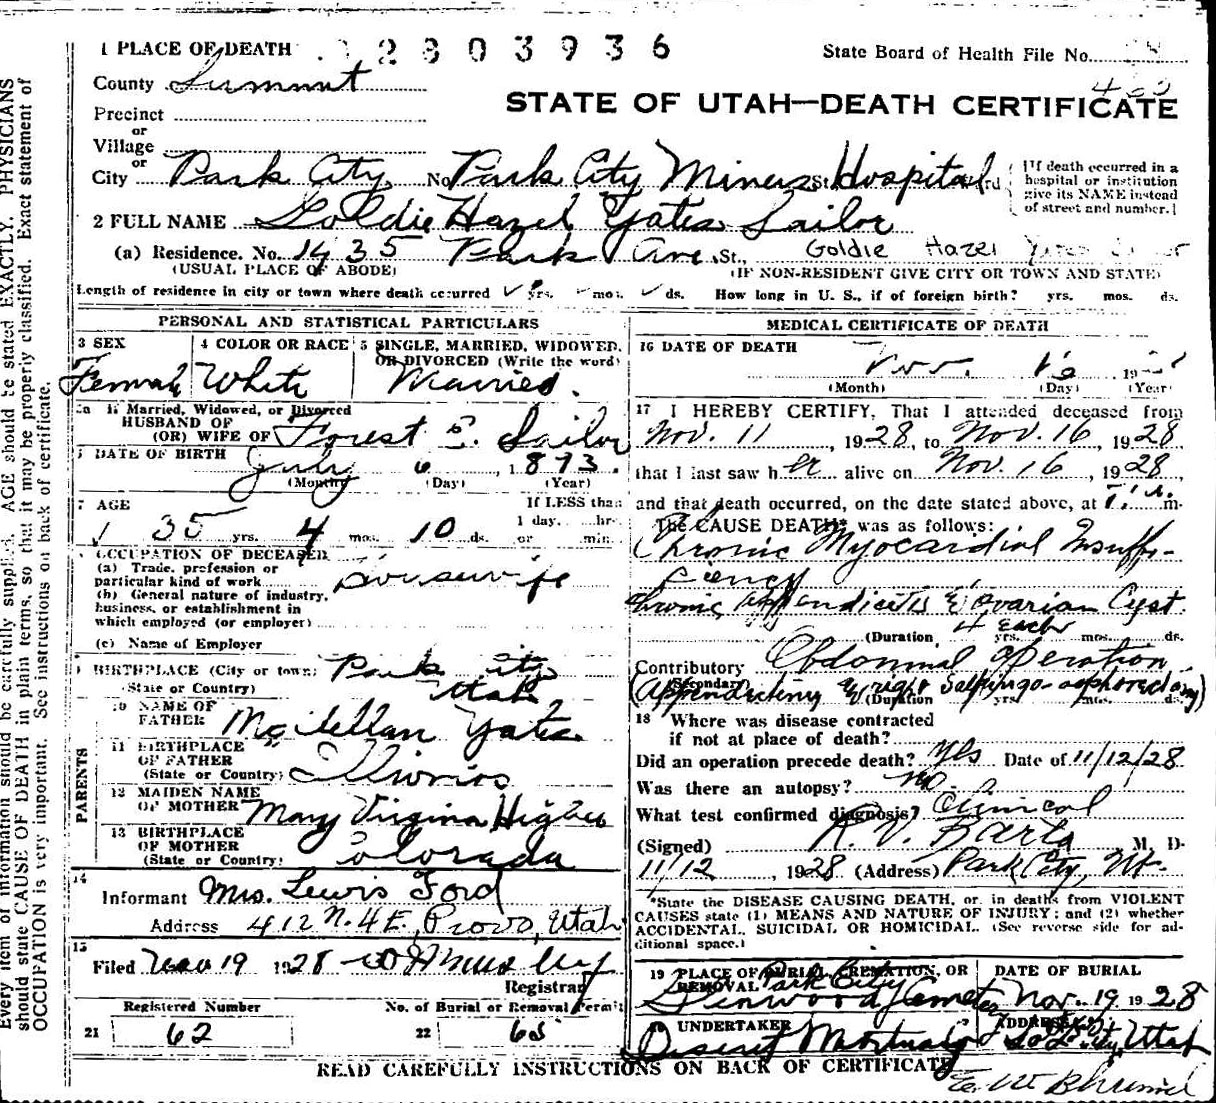 Every item of information should be carefully supplied. AGE should be stated EXACTLY. PHYSICIANS
should state CAUSE OF DEATH in plain terms, so that it may be properly classified. Exact statement of
OCCUPATION is very important. See instructions on back of certificate.
1 PLACE OF DEATH 2803936 State Board of Health File No.
County Summit
STATE OF UTAH—DEATH CERTIFICATE
Precinct
or
Village
or
City Park City No. Park City Miners St. Hospital Ward
[If death occurred in a
hospital or institution
give its NAME instead
of street and number.]
2 FULL NAME Goldie Hazel Yates Sailor
(a) Residence. No. 1435 Park Ave St., Goldie Hazel Yates
(USUAL PLACE OF ABODE) (IF NON-RESIDENT GIVE CITY OR TOWN AND STATE)
Length of residence in city or town where death occurred yrs. mos. ds. How long in U. S., if of foreign birth? yrs. mos. ds.
PERSONAL AND STATISTICAL PARTICULARS
3 SEX 4 COLOR OR RACE 5 SINGLE, MARRIED, WIDOWED,
OR DIVORCED (Write the word)
Female White Married.
5a If Married, Widowed, or Divorced
HUSBAND OF
(OR) WIFE OF Forest E. Sailor
6 DATE OF BIRTH July 6, 1893.
(Month) (Day) (Year)
7 AGE If LESS than
1 day. hrs.
35 yrs. 4 mos. 10 ds. or min.
8 OCCUPATION OF DECEASED
(a) Trade, profession or
particular kind of work Housewife
(b) General nature of industry,
business, or establishment in
which employed (or employer)
(c) Name of Employer
9 BIRTHPLACE (City or town) Park City
(State or Country) Utah
PARENTS
10 NAME OF
FATHER McClellan Yates
11 BIRTHPLACE
OF FATHER
(State or Country) Illinois
12 MAIDEN NAME
OF MOTHER Mary Virginia
13 BIRTHPLACE
OF MOTHER
(State or Country) Colorado
14
Informant Mrs. Lewis Ford
Address 412 N. 4 E., Provo, Utah
15
Filed Nov 19 1928
Registrar
Registered Number No. of Burial or Removal Permit
21 62 22 65
MEDICAL CERTIFICATE OF DEATH
16 DATE OF DEATH Nov. 16 19
(Month) (Day) (Year)
17 I HEREBY CERTIFY, That I attended deceased from
Nov. 11, 1928, to Nov. 16, 1928
that I last saw her alive on Nov. 16, 1928
and that death occurred, on the date stated above, at m.
The CAUSE DEATH* was as follows:
Chronic Myocardial Insuffi-
ciency
Chronic Appendicitis & Ovarian Cyst.
4 each
(Duration yrs. mos. ds.
Contributory Abdominal operation
(Secondary)
(Appendectomy & right Salpingo-oophorectomy)
(Duration yrs. mos. ds.
18 Where was disease contracted
if not at place of death?
Did an operation precede death? Yes Date of 11/12/28
Was there an autopsy? No
What test confirmed diagnosis? Clinical
(Signed) R. V. Larta M. D.
11/12, 1928 (Address) Park City, Ut.
*State the DISEASE CAUSING DEATH, or, in deaths from VIOLENT
CAUSES state (1) MEANS AND NATURE OF INJURY; and (2) whether
ACCIDENTAL, SUICIDAL OR HOMICIDAL. (See reverse side for ad-
ditional space.)
19 PLACE OF BURIAL, CREMATION, OR
REMOVAL Park City DATE OF BURIAL
Glenwood Cemetery Nov. 19 1928
20 UNDERTAKER ADDRESS
Deseret Mortuary S. L. City, Utah
READ CAREFULLY INSTRUCTIONS ON BACK OF CERTIFICATE